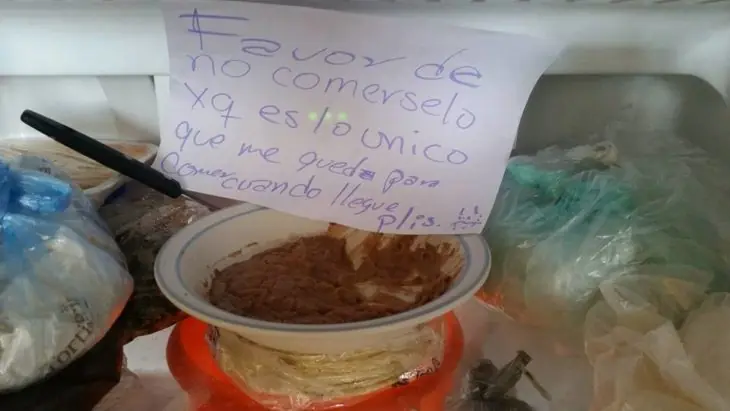 Favor de
no comerselo
xq es lo unico
que me queda para
comer cuando llegue
plis.